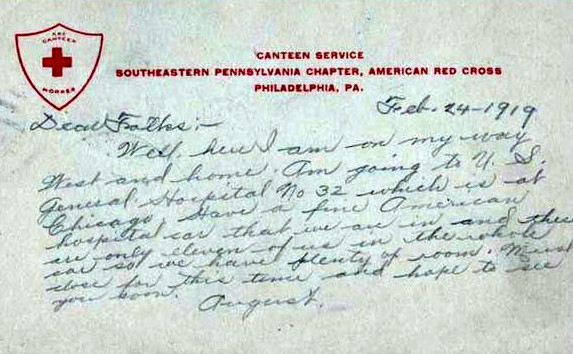 ARC
CANTEEN
WORKER
CANTEEN SERVICE
SOUTHEASTERN PENNSYLVANIA CHAPTER, AMERICAN RED CROSS
PHILADELPHIA, PA.
Feb. 24-1919
Dear Folks:-
Well, here I am on my way
West and home. Am going to U. S.
General Hospital No 32 which is at
Chicago. Have a fine American
hospital car that we are in and there
is only eleven of us in the whole
car so we have plenty of room. Must
close for this time and hope to see
you soon. August.